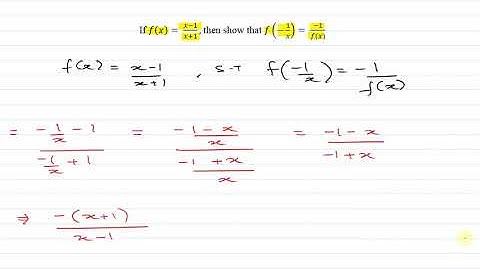 If f(x) = x−1/x+1, then show that f(−1/x) = −1/f(x)
f(x) = x−1/x+1 , S.T f(−1/x) = −1/f(x)
= (−1/x − 1)/(−1/x + 1) = ((−1 − x)/x)/((−1 + x)/x) = (−1 − x)/(−1 + x)
⇒ −(x+1)/x−1